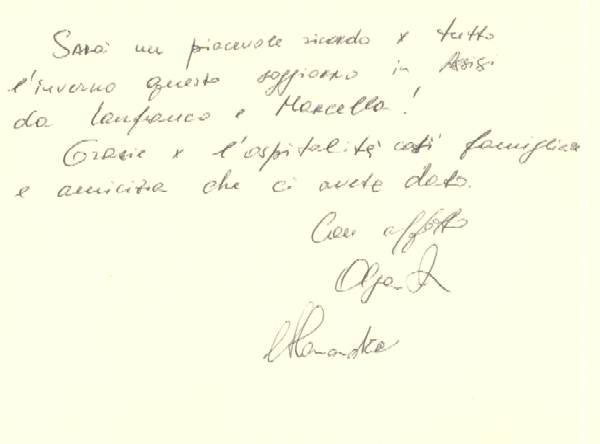 Sarà un piacevole ricordo x tutto
l'inverno questo soggiorno in Assisi
da Lanfranco e Marcella!
Grazie x l'ospitalità così famigliare
e amicizia che ci avete dato.
Con affetto
Olga